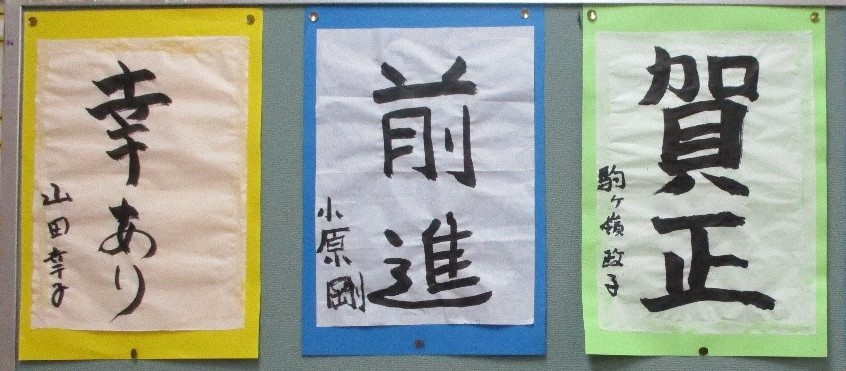 賀正
駒ケ嶺政子
前進
小原剛
幸あり
山田幸子